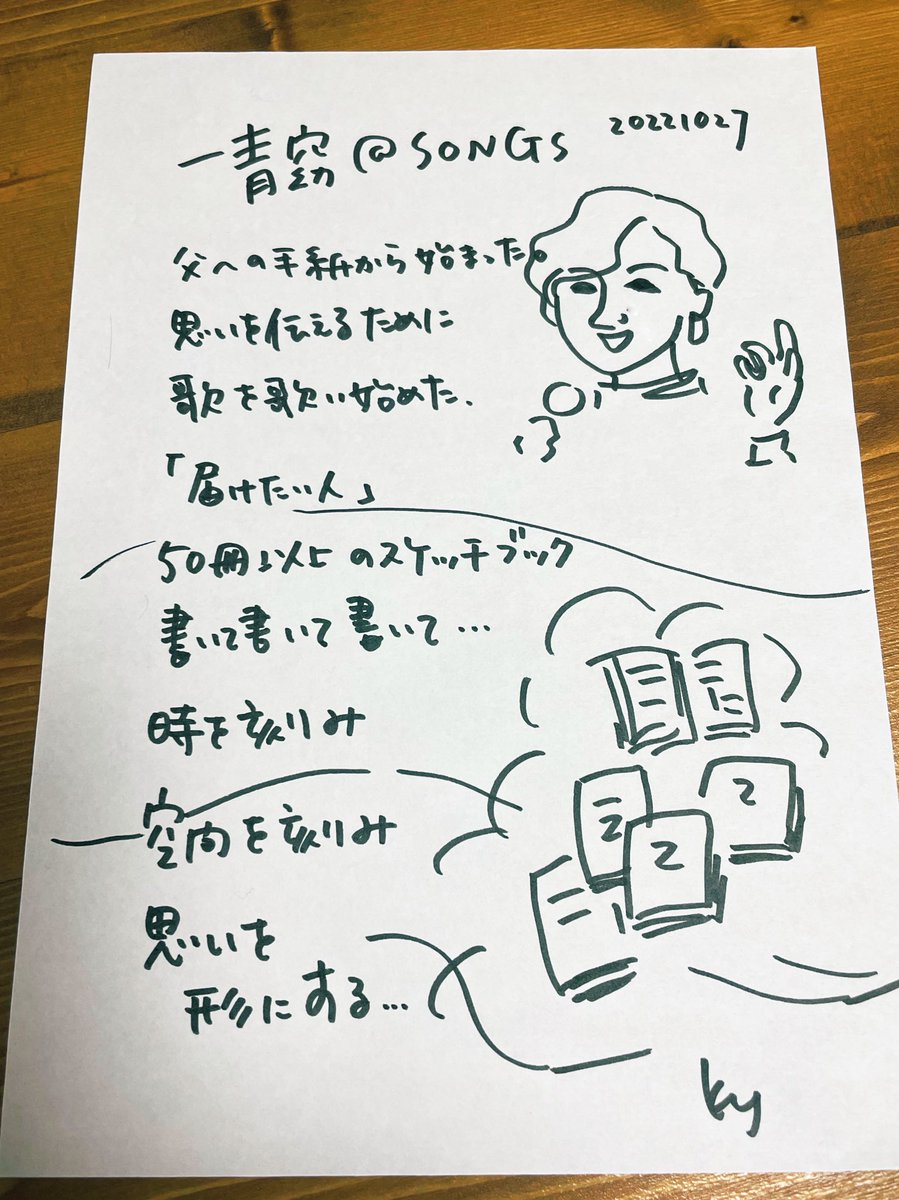 一青窈@SONGS 20221027
父への手紙から始まった。
思いを伝えるために
歌を歌い始めた.
「届けたい人」
50冊以上のスケッチブック
書いて書いて書いて…
時を刻み
空間を刻み
思いを
形にする…
2
2
2
ky